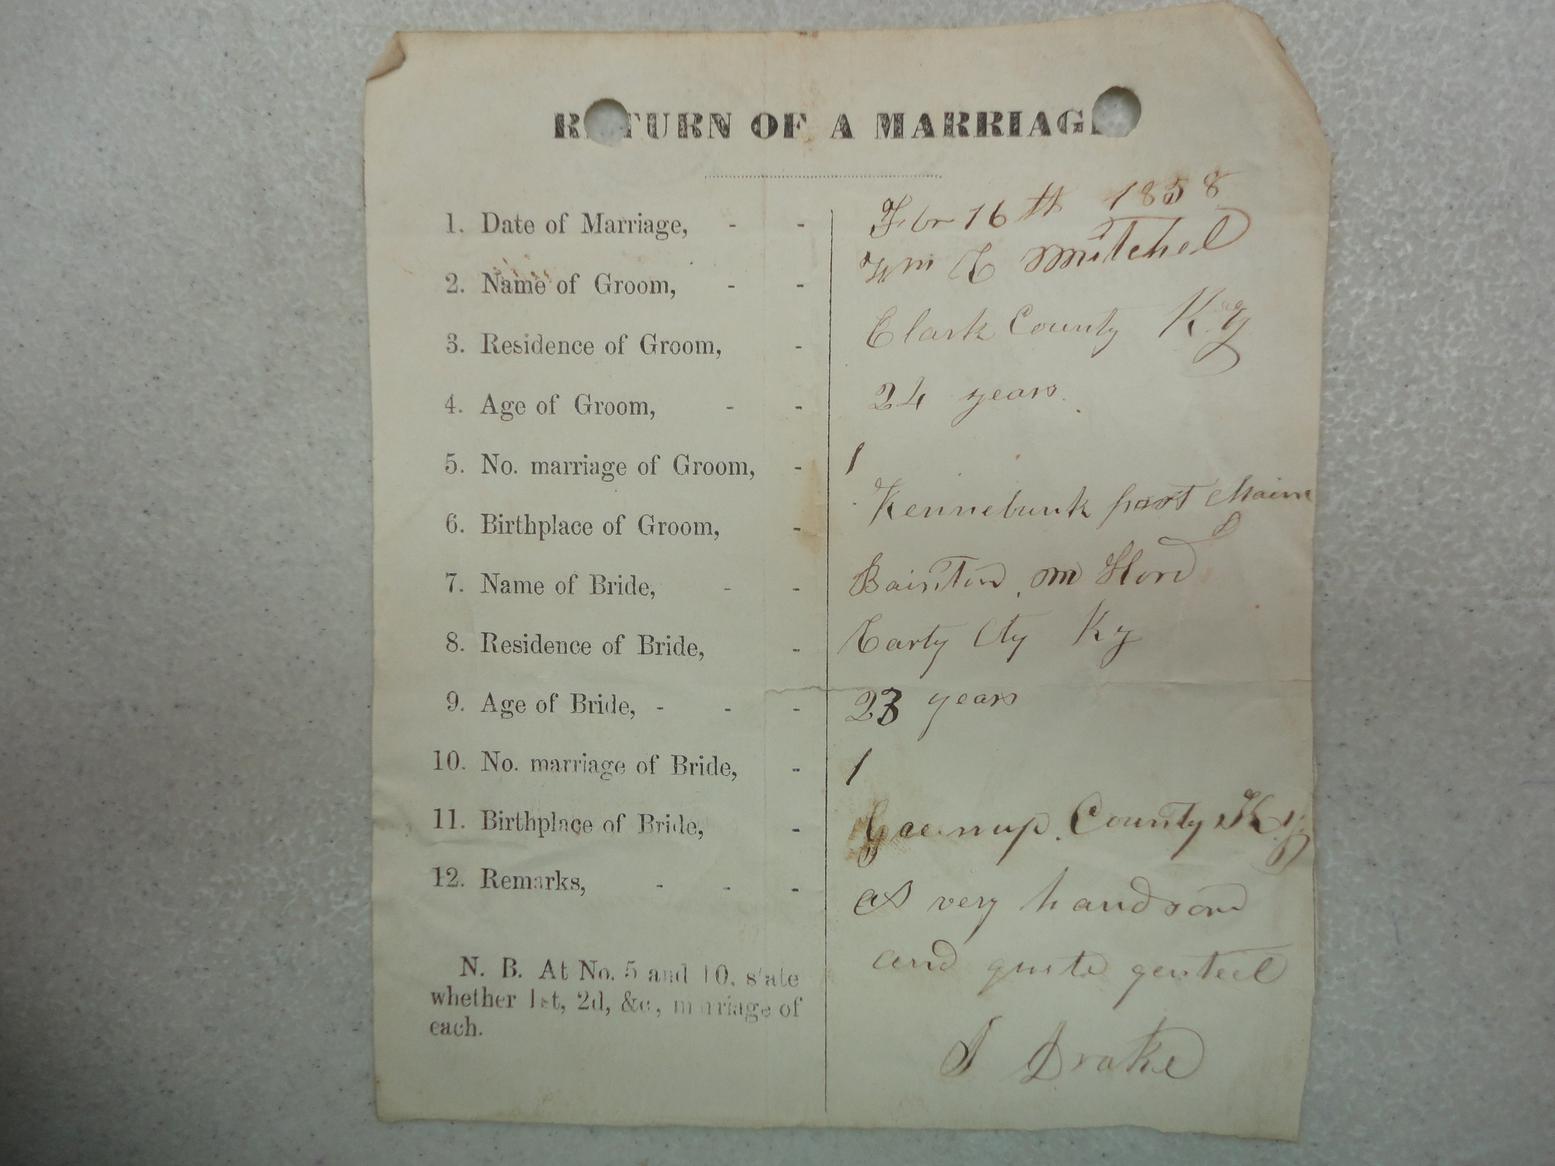 RETURN OF A MARRIAGE
1. Date of Marriage, - - Fbr 16th 1858
2. Name of Groom, - - Wm C Mitchel
3. Residence of Groom, - Clark County Ky
4. Age of Groom, - - 24 years
5. No. marriage of Groom, - 1
6. Birthplace of Groom, - Kennebunk port Maine
7. Name of Bride, - - m Hord
8. Residence of Bride, - Carty Cty Ky
9. Age of Bride, - - - 23 years
10. No. marriage of Bride, - 1
11. Birthplace of Bride, - Greenup County Ky
12. Remarks, - - - as very handsom
and quite genteel
N. B. At No. 5 and 10, state
whether 1st, 2d, &c., marriage of
each.
J Drake